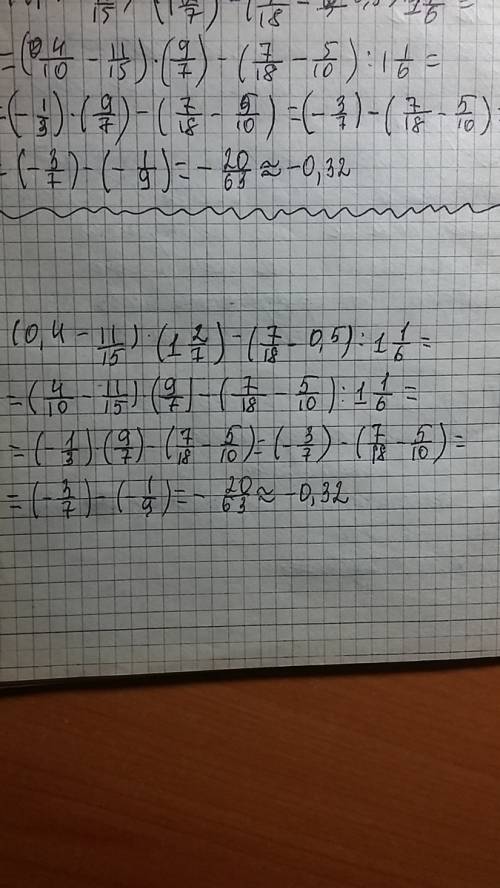 =(0,4/10 − 11/15)·(9/7) − (7/18 − 5/10) : 1 1/6 =
=(−1/3)·(9/7) − (7/18 − 5/10) = (−3/7) − (7/18 − 5/10) =
= (−3/7) − (−1/9) = − 20/63 ≈ −0,32
(0,4 − 11/15)·(1 2/7) − (7/18 − 0,5) : 1 1/6 =
=(4/10 − 11/15)·(9/7) − (7/18 − 5/10) : 1 1/6 =
=(−1/3)·(9/7) − (7/18 − 5/10) = (−3/7) − (7/18 − 5/10) =
=(−3/7) − (−1/9) = − 20/63 ≈ −0,32